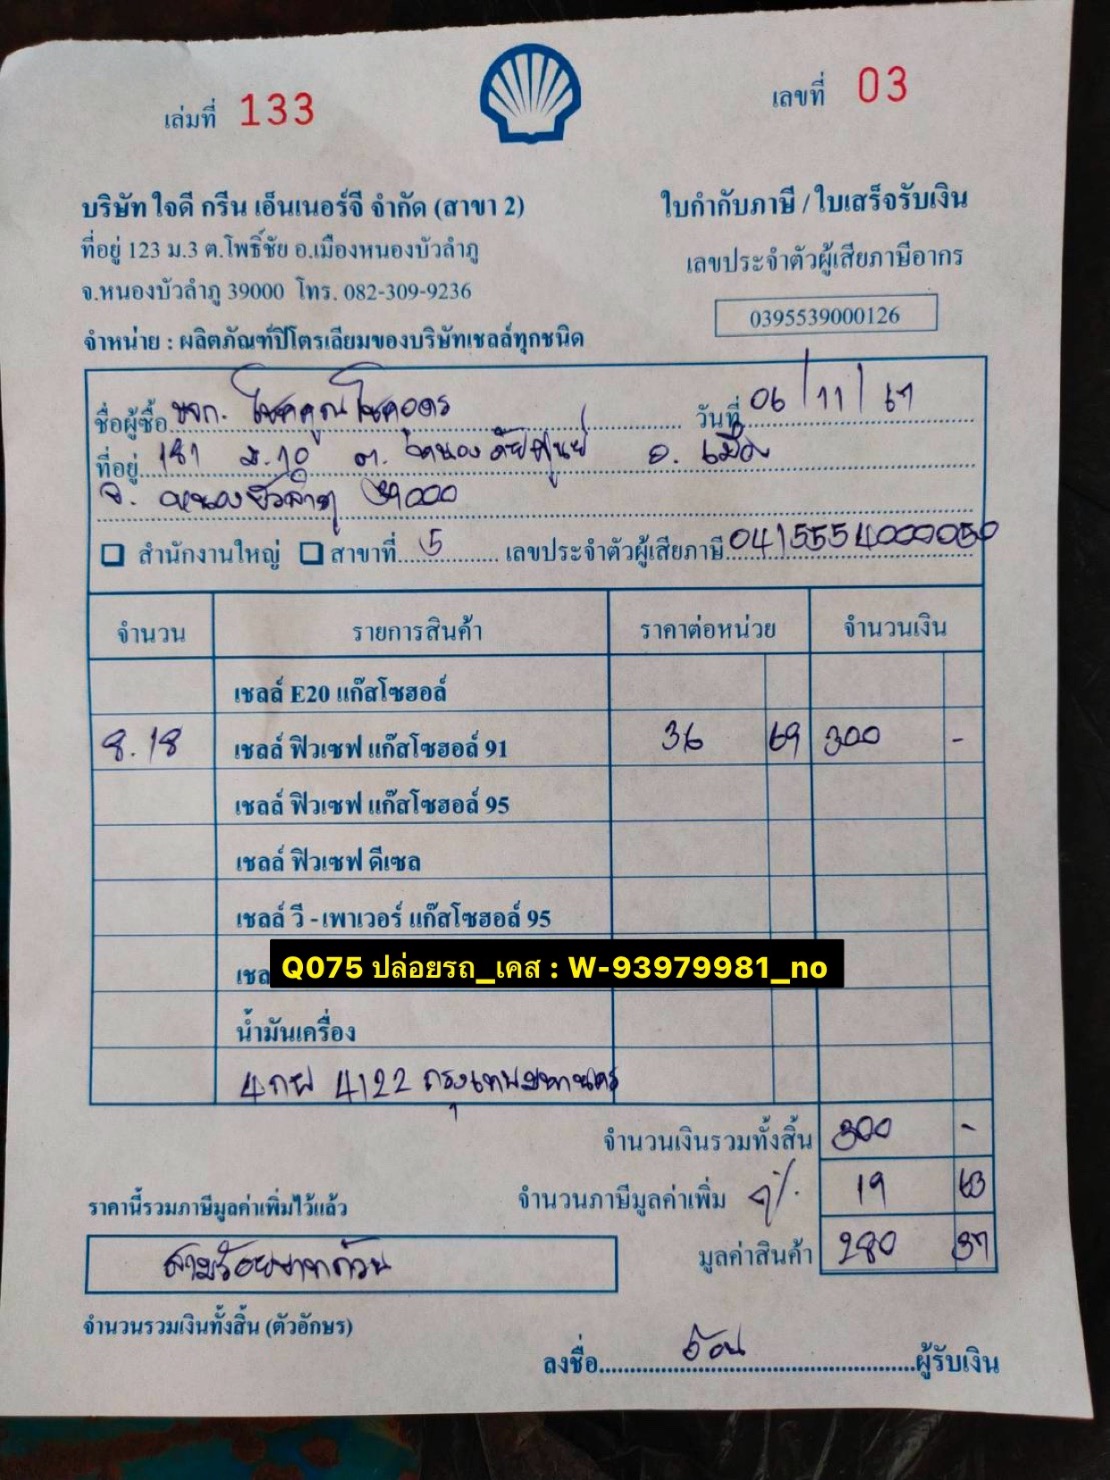 เล่มที่ 133
เลขที่ 03
บริษัท ใจดี กรีน เอ็นเนอร์จี จำกัด (สาขา 2)
ใบกำกับภาษี / ใบเสร็จรับเงิน
ที่อยู่ 123 ม.3 ต.โพธิ์ชัย อ.เมืองหนองบัวลำภู
เลขประจำตัวผู้เสียภาษีอากร
จ.หนองบัวลำภู 39000 โทร. 082-309-9236
0395539000126
จำหน่าย : ผลิตภัณฑ์ปิโตรเลียมของบริษัทเชลล์ทุกชนิด
ชื่อผู้ซื้อ หจก. โชคคูณโชคอุดร วันที่ 06/11/67
ที่อยู่ 181 ม.10 ต. หนองภัยศูนย์ อ. เมือง
จ. หนองบัวลำภู 39000
สำนักงานใหญ่ สาขาที่ 5 เลขประจำตัวผู้เสียภาษี 0415554000050
จำนวน รายการสินค้า ราคาต่อหน่วย จำนวนเงิน
เชลล์ E20 แก๊สโซฮอล์
8.18 เชลล์ ฟิวเซฟ แก๊สโซฮอล์ 91 36 69 300 -
เชลล์ ฟิวเซฟ แก๊สโซฮอล์ 95
เชลล์ ฟิวเซฟ ดีเซล
เชลล์ วี - เพาเวอร์ แก๊สโซฮอล์ 95
Q075 ปล่อยรถ_เคส : W-93979981_no
น้ำมันเครื่อง
4กผ 4122 กรุงเทพมหานคร
จำนวนเงินรวมทั้งสิ้น 300 -
ราคานี้รวมภาษีมูลค่าเพิ่มไว้แล้ว
จำนวนภาษีมูลค่าเพิ่ม 7% 19 63
มูลค่าสินค้า 280 37
สามร้อยบาทถ้วน
จำนวนรวมเงินทั้งสิ้น (ตัวอักษร)
ลงชื่อ ผู้รับเงิน